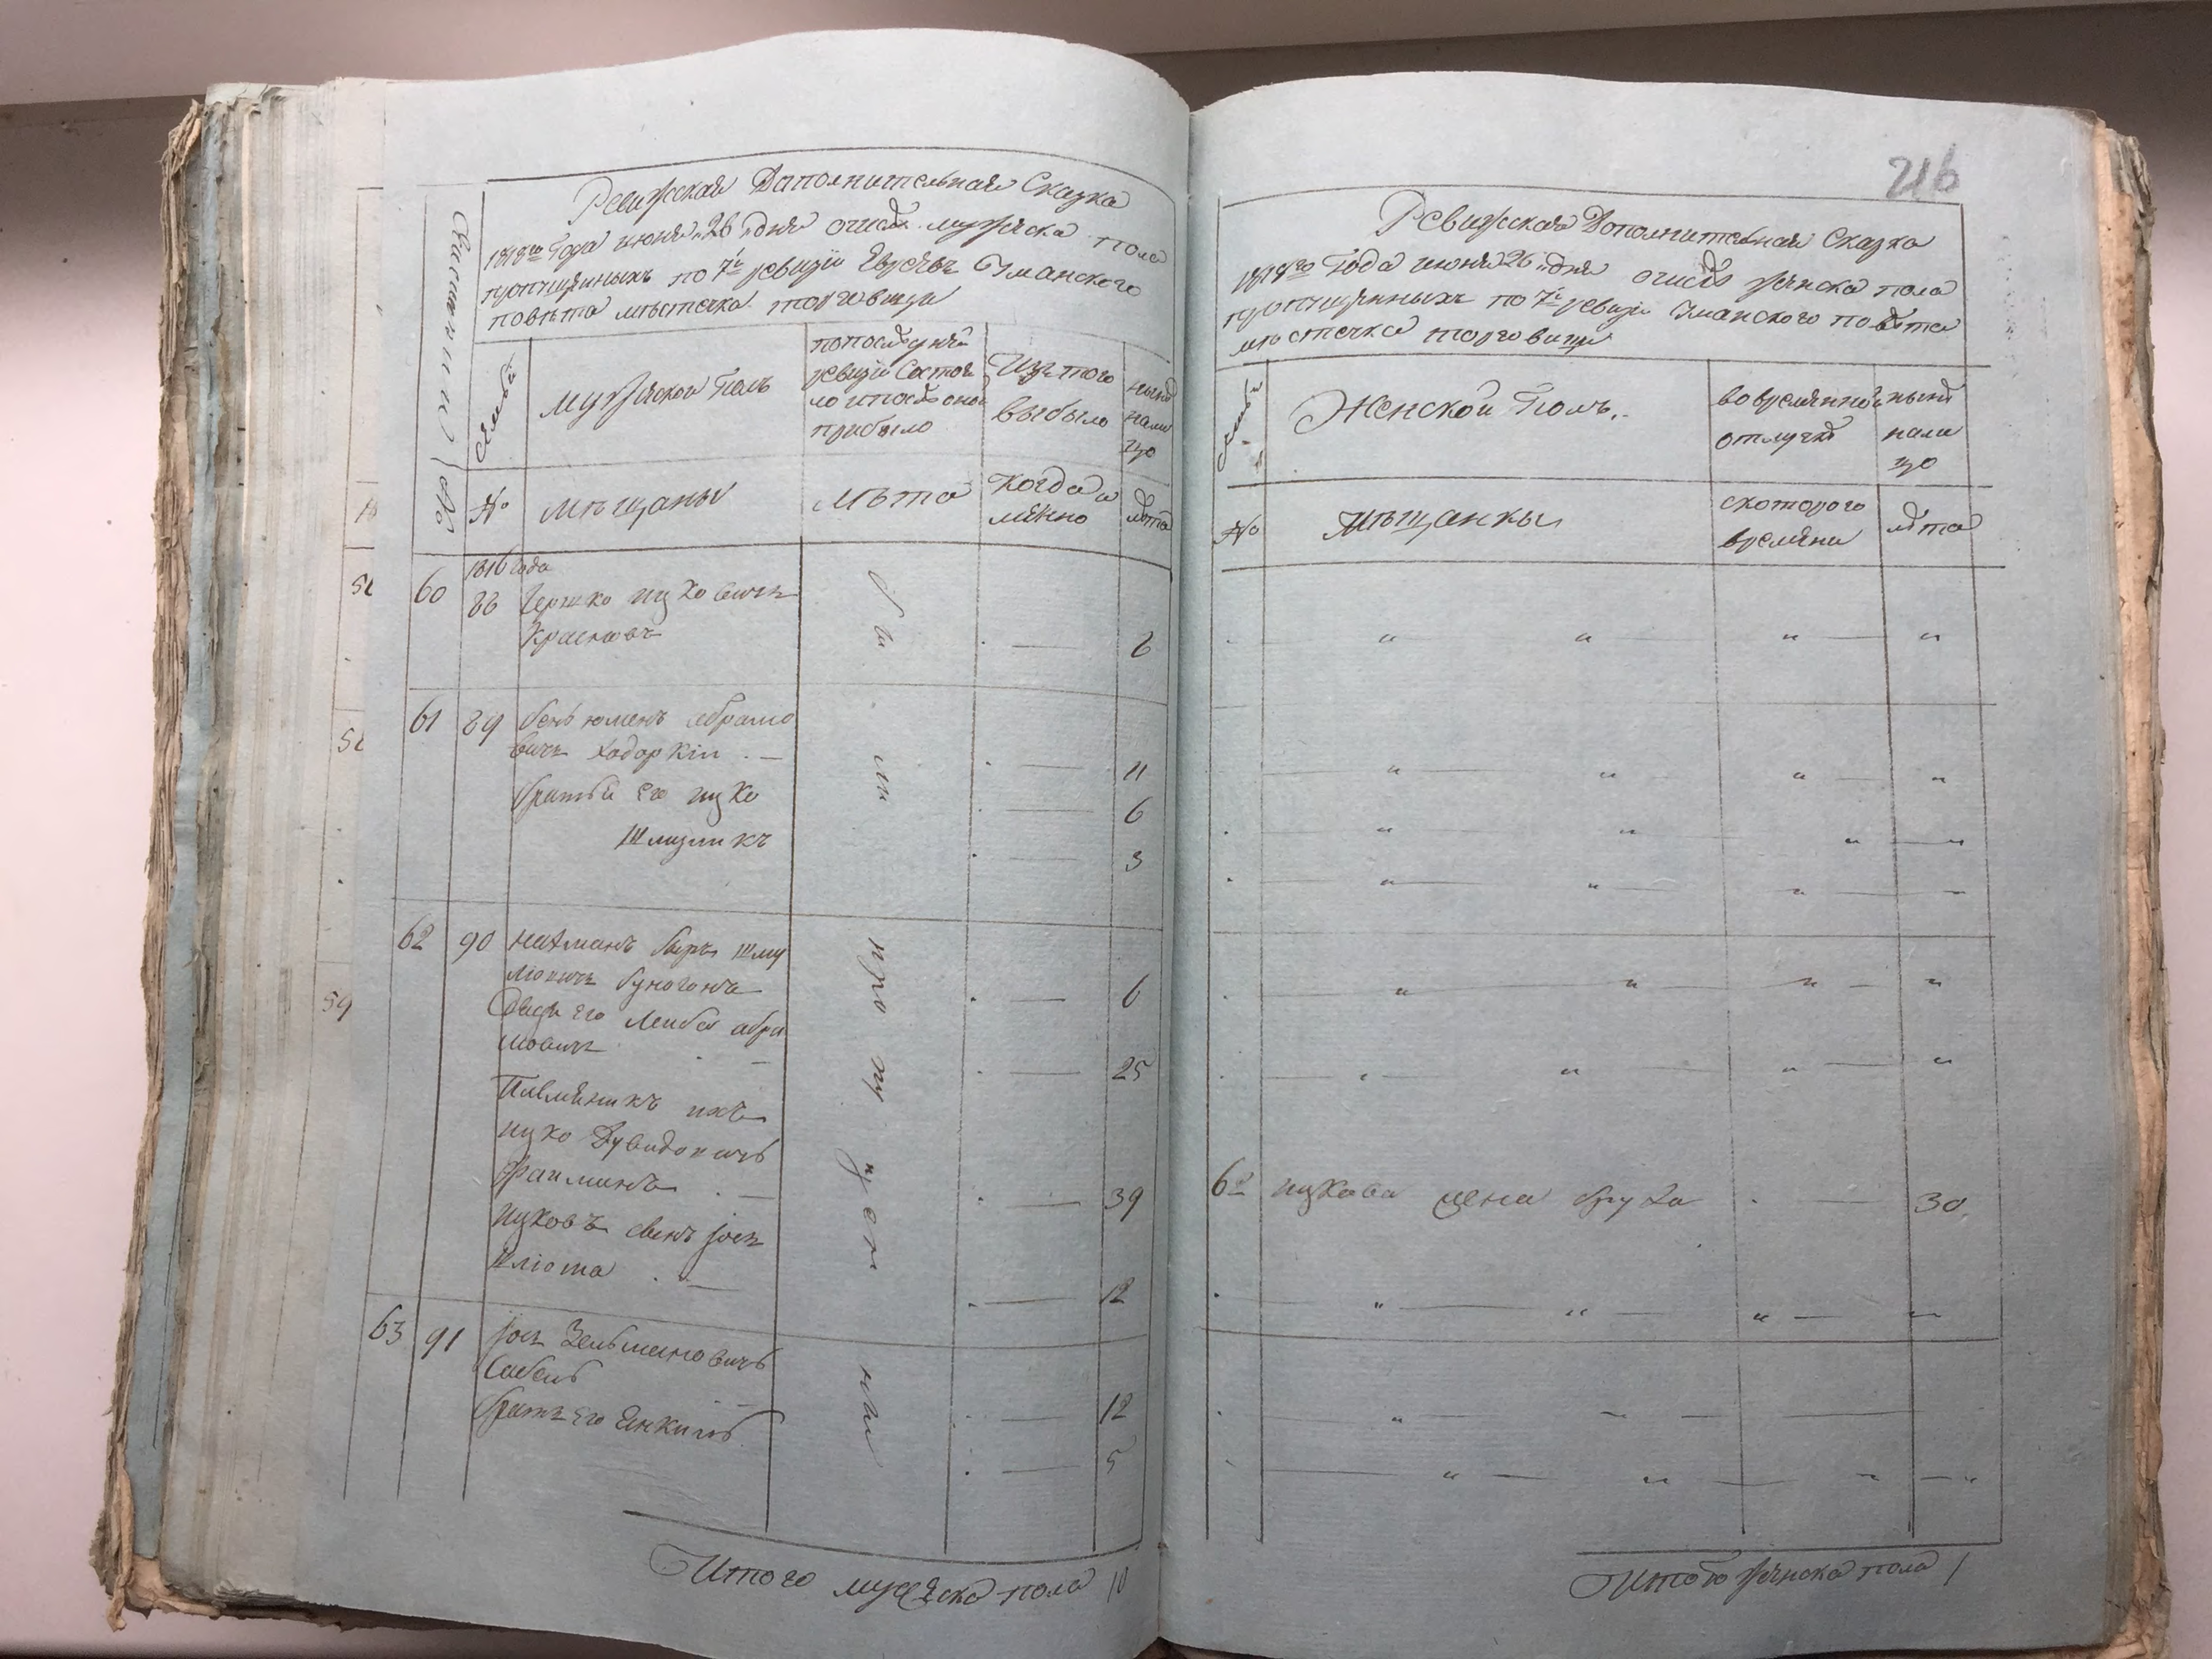 Ревижская Даполнительная Сказка
1818го Года июня 26 дня о числе мужеска пола
пропущенныхъ по 7й ревизіи Евреевъ Уманского
повѣта мѣстечка торговици
Мужеской Полъ
по последней
ревизіи Состоя
ло и после оной
прибыло
Изъ того
выбыло
ныне
нали
цо
№
№
мѣщаны
лѣта
когда и
менно
лета
1816 года
60 88 Гершко ицковичъ
Красновъ 6
61 89 беньюменъ абрамо
вичъ ходоркіи 11
братья его ицко 6
Шмуликъ 3
62 90 нахманъ беръ шму
ліовичъ 6
его Лейба абра
мовичъ 25
Племяникъ ихъ
ицко Дувидовичъ
39
ицковъ сынъ іось
Шліома 12
63 91 іось Зельмановичъ
12
братъ его Янкиль 5
были пропущены
Итого мужеска пола 10
216
Ревижская Дополнительная Сказка
1818го Года июня 26 дня о числе женска пола
пропущенныхъ по 7й ревизіи Уманского повета
мѣстечка торговици
Женской Полъ
во временной
отлучке
ныне
нали
цо
№
мѣщанки
с которого
времени
лета
62 ицкова жена бруха 30
Итого женска пола 1
58
58
59